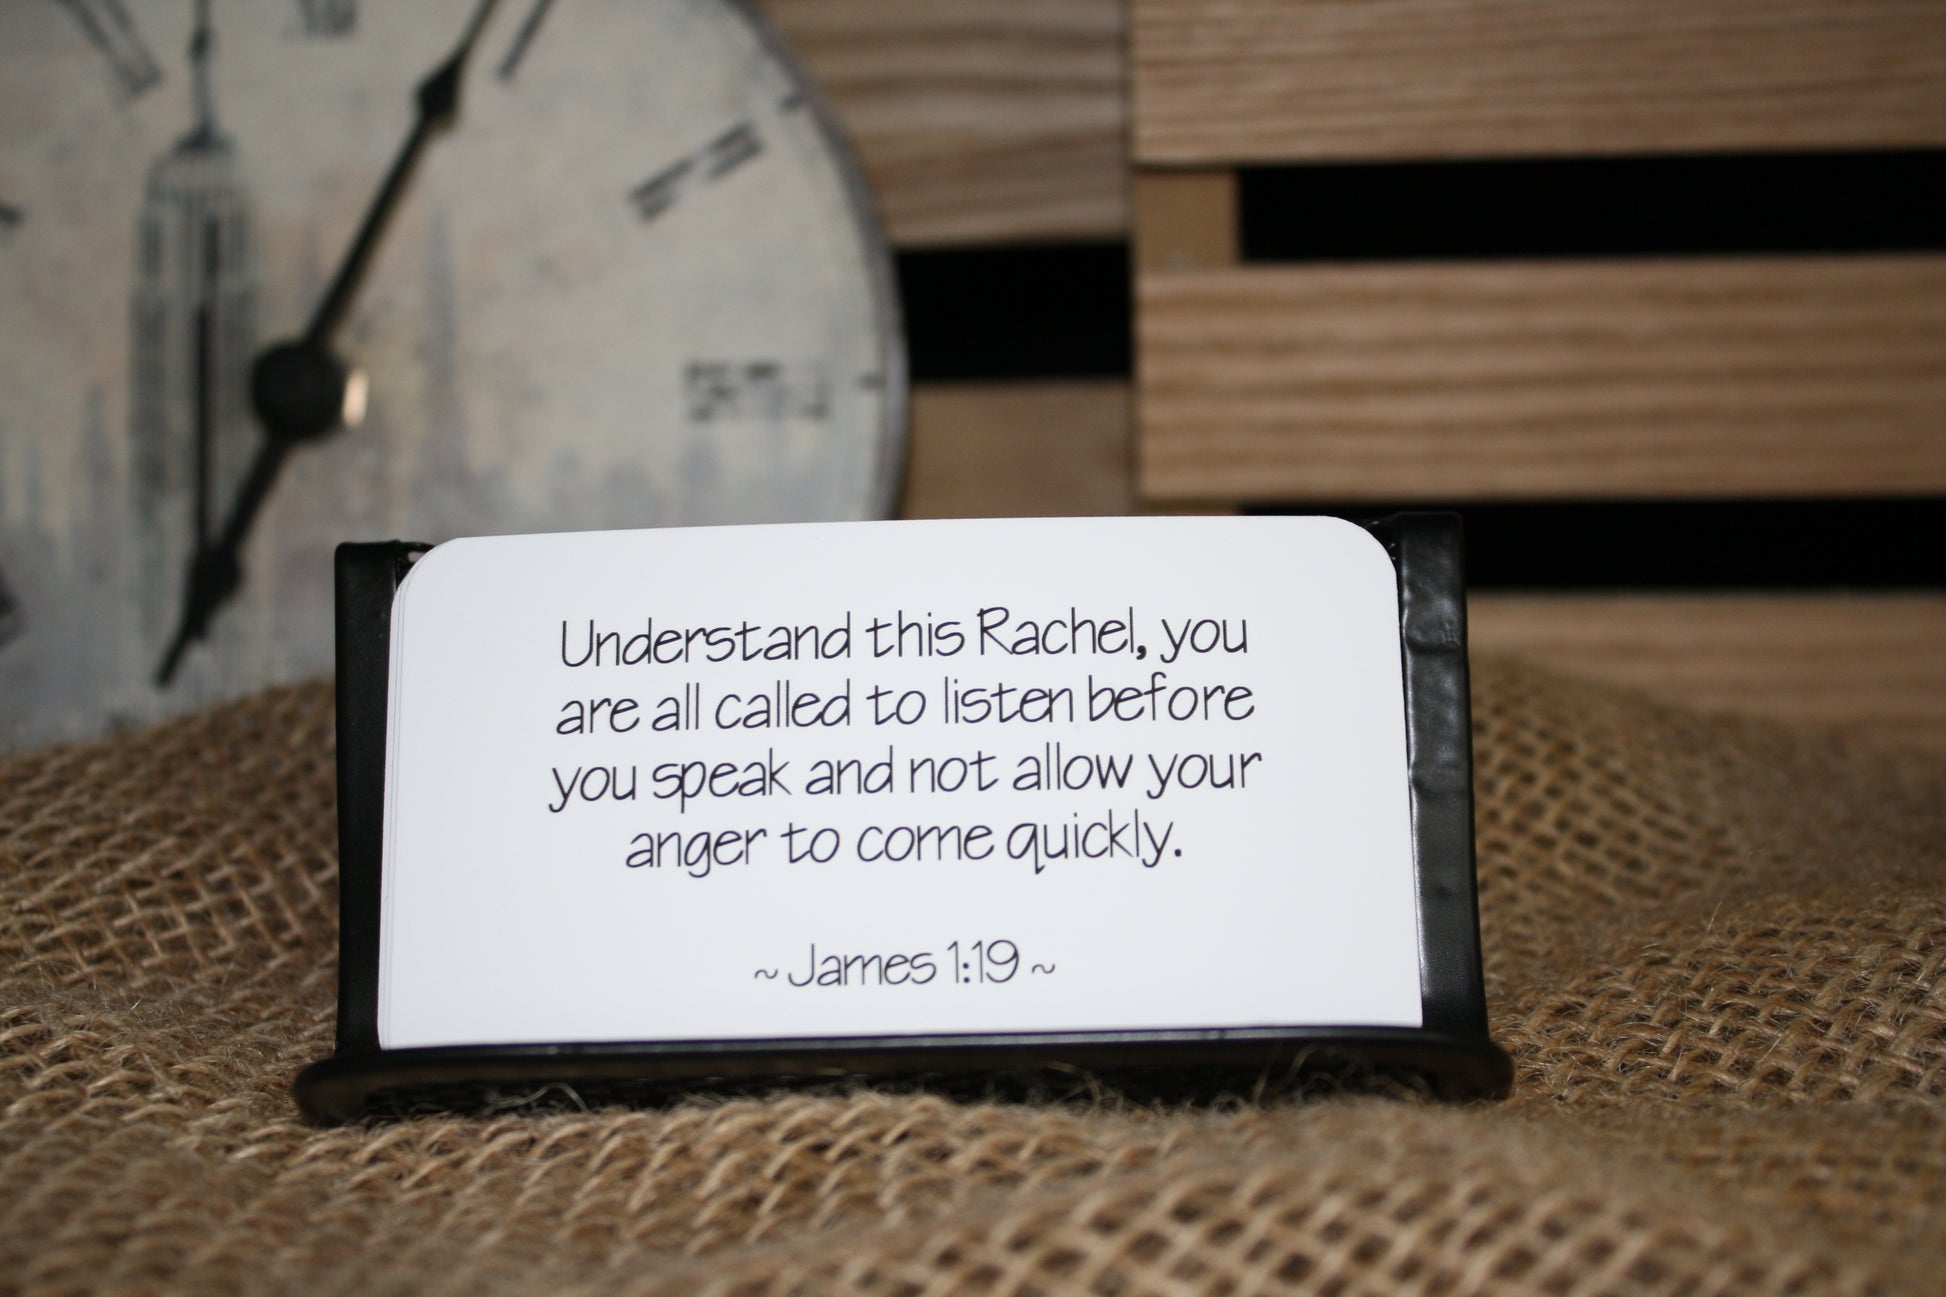 Understand this Rachel, you
are all called to listen before
you speak and not allow your
anger to come quickly.
~ James 1:19 ~